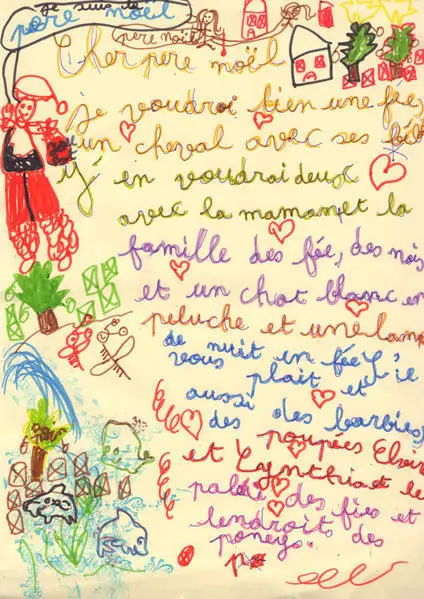 je suis le
père noël
père noël
Cher père noël
je voudrai bien une fée
un cheval avec ses
j' en voudrai deux
avec la maman et la
famille des fée, des nois
et un chat blanc en
peluche et une lam
de nuit en fée s'il
vous plait et
aussi des des barbies,
poupées
et Cynthia et le
palai des fies et
lendroits des
poneys.